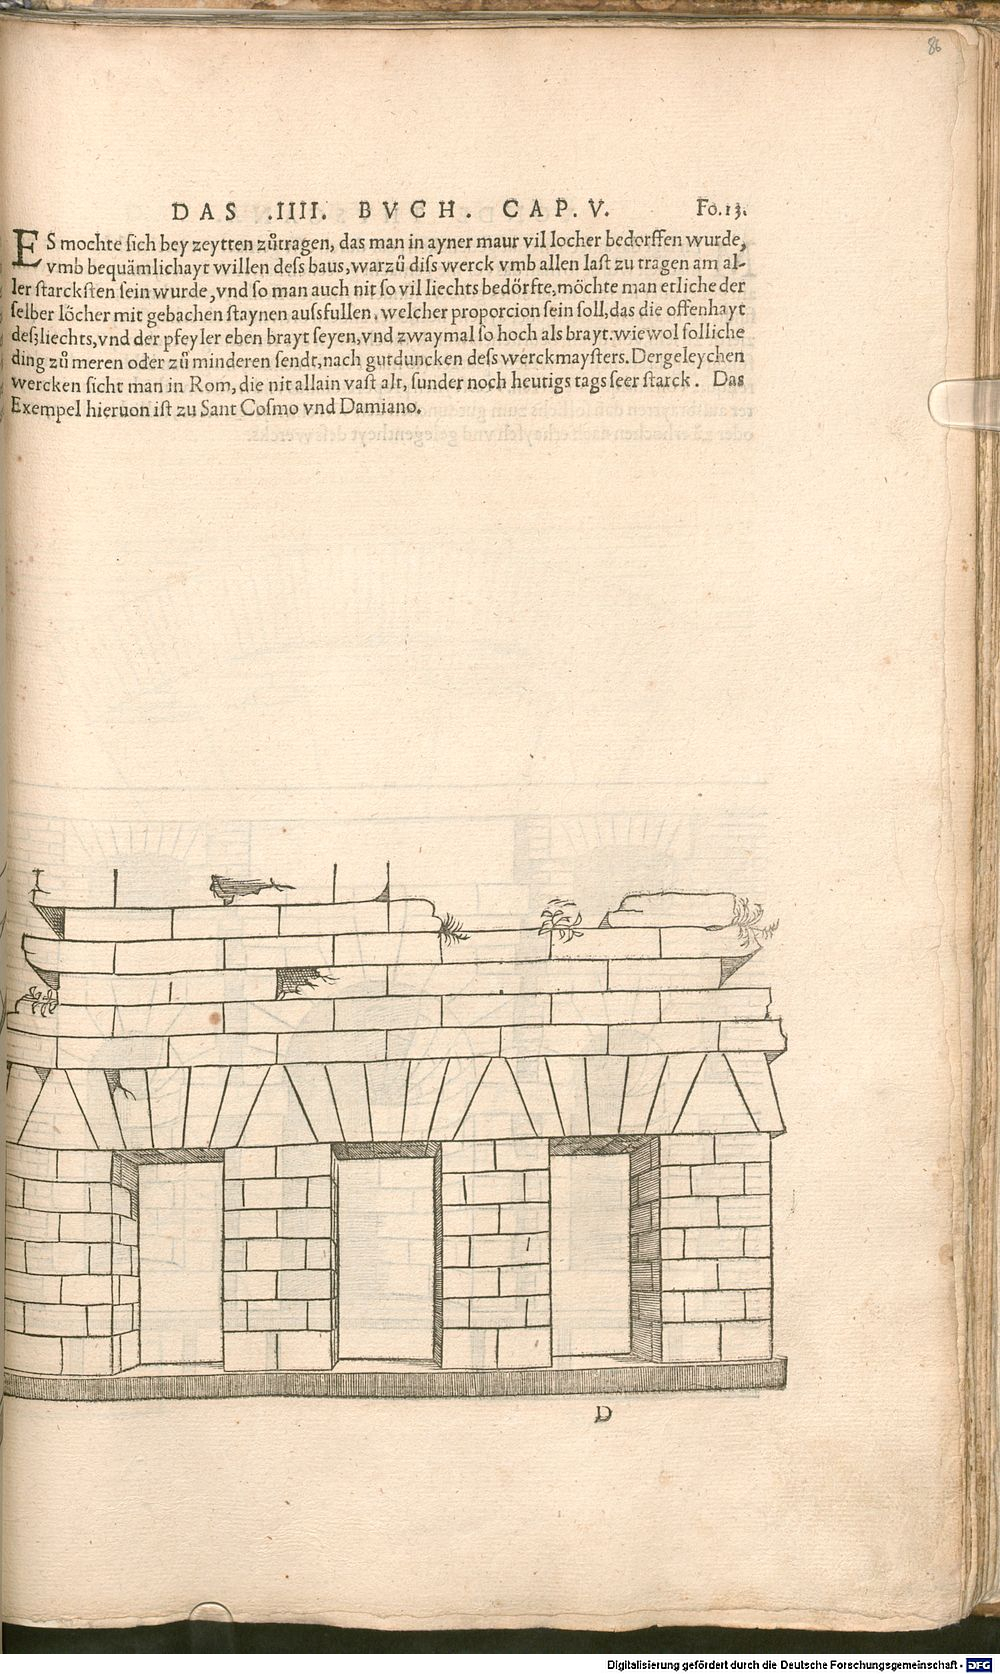 86
DAS .IIII. BVCH. CAP. V. Fo. 13.
ES mochte sich bey zeytten zůtragen, das man in ayner maur vil locher bedorffen wurde,
vmb bequämlichayt willen dess baus, warzů diss werck vmb allen last zu tragen am al-
ler starcksten sein wurde, vnd so man auch nit so vil liechts bedörfte, möchte man etliche der
selber löcher mit gebachen staynen aussfullen, welcher proporcion sein soll, das die offenhayt
deß liechts, vnd der pfeyler eben brayt seyen, vnd zwaymal so hoch als brayt. wiewol solliche
ding zů meren oder zů minderen sendt, nach gutduncken dess werckmaysters. Dergeleychen
wercken sicht man in Rom, die nit allain vast alt, sunder noch heutigs tags seer starck. Das
Exempel hieruon ist zu Sant Cosmo vnd Damiano.
D
Digitalisierung gefördert durch die Deutsche Forschungsgemeinschaft - DFG